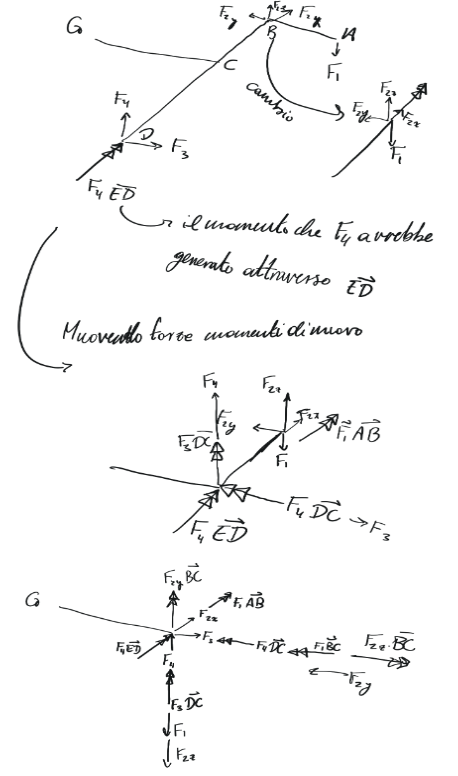 F₂z
F₂y F₂x
G B A
C F₁
cambio
F₂z
F₂y F₂x
F₁
F₄ D
F₃
F₄ ED
il momento che F₄ avrebbe
generato attraverso ED
Muovendo forze momenti di nuovo
F₄ F₂z
F₂y F₂x F₁ AB
F₃ DC
F₁
F₄ DC → F₃
F₄ ED
F₂y BC
G F₁ AB
F₂x
F₄ED F₃ F₄DC F₁BC F₂z·BC
F₄ F₂y
F₃ DC
F₁
F₂z